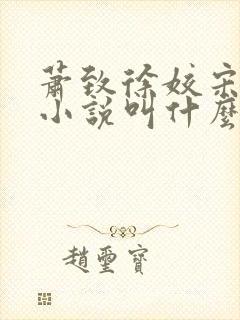 蕭致徐姣宋
小說叫什麼
趙璽寶